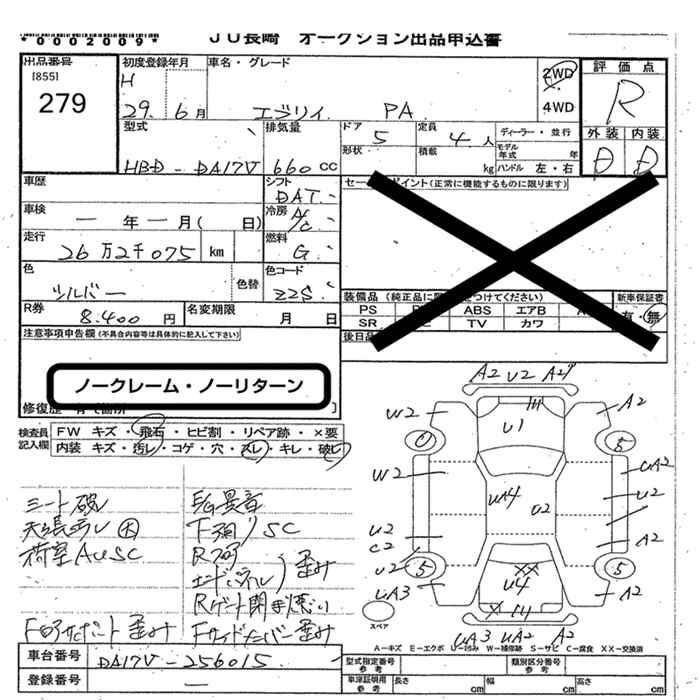 *0002009*
JU長崎 オークション出品申込書
出品番号 初度登録年月 車名・グレード 2WD 評価点
[855] H
279 29. 6月 エブリイ PA 4WD R
型式 排気量 ドア 5 定員 4人 ディーラー・並行 外装 内装
形状 積載 kg モデル年式 年 ハンドル 左・右
HBD-DA17V 660cc D D
車歴 シフト DAT セールスポイント(正常に機能するものに限ります)
車検 年 月( 日) 冷房 A/C
走行 26万2千075 km 燃料 G
色 シルバー 色替 色コード Z2S
装備品(純正品に つけてください) 新車保証書
R券 8.400円 名変期限 月 日 PS ABS エアB 有・無
SR TV カワ
注意事項申告欄(不具合内容等は具体的に記入して下さい) 後日品
ノークレーム・ノーリターン
修復歴
検査員記入欄 FW キズ・飛石・ヒビ割・リペア跡・×要
内装 キズ・汚レ・コゲ・穴・スレ・キレ・破レ
A2 U2 A2
W2 A2
U1
W2 UA4 U2 U2
U2 A2
C2
U2
UA3 U4 A2
UA3 UA2 A2
5 5 5
シート破レ E/G異音
天張汚レ 大 下廻り SC
荷室AUSC
エンドパネル 歪み
Rゲート閉キ
歪み 歪み
スペア
A-キズ E-エクボ U-凹み W-補修跡 S-サビ C-腐食 XX-交換済
車台番号 DA17V-256015 型式指定番号 参考 類別区分番号 参考
登録番号 — 車庫証明用 参考 長さ cm 幅 cm 高さ cm